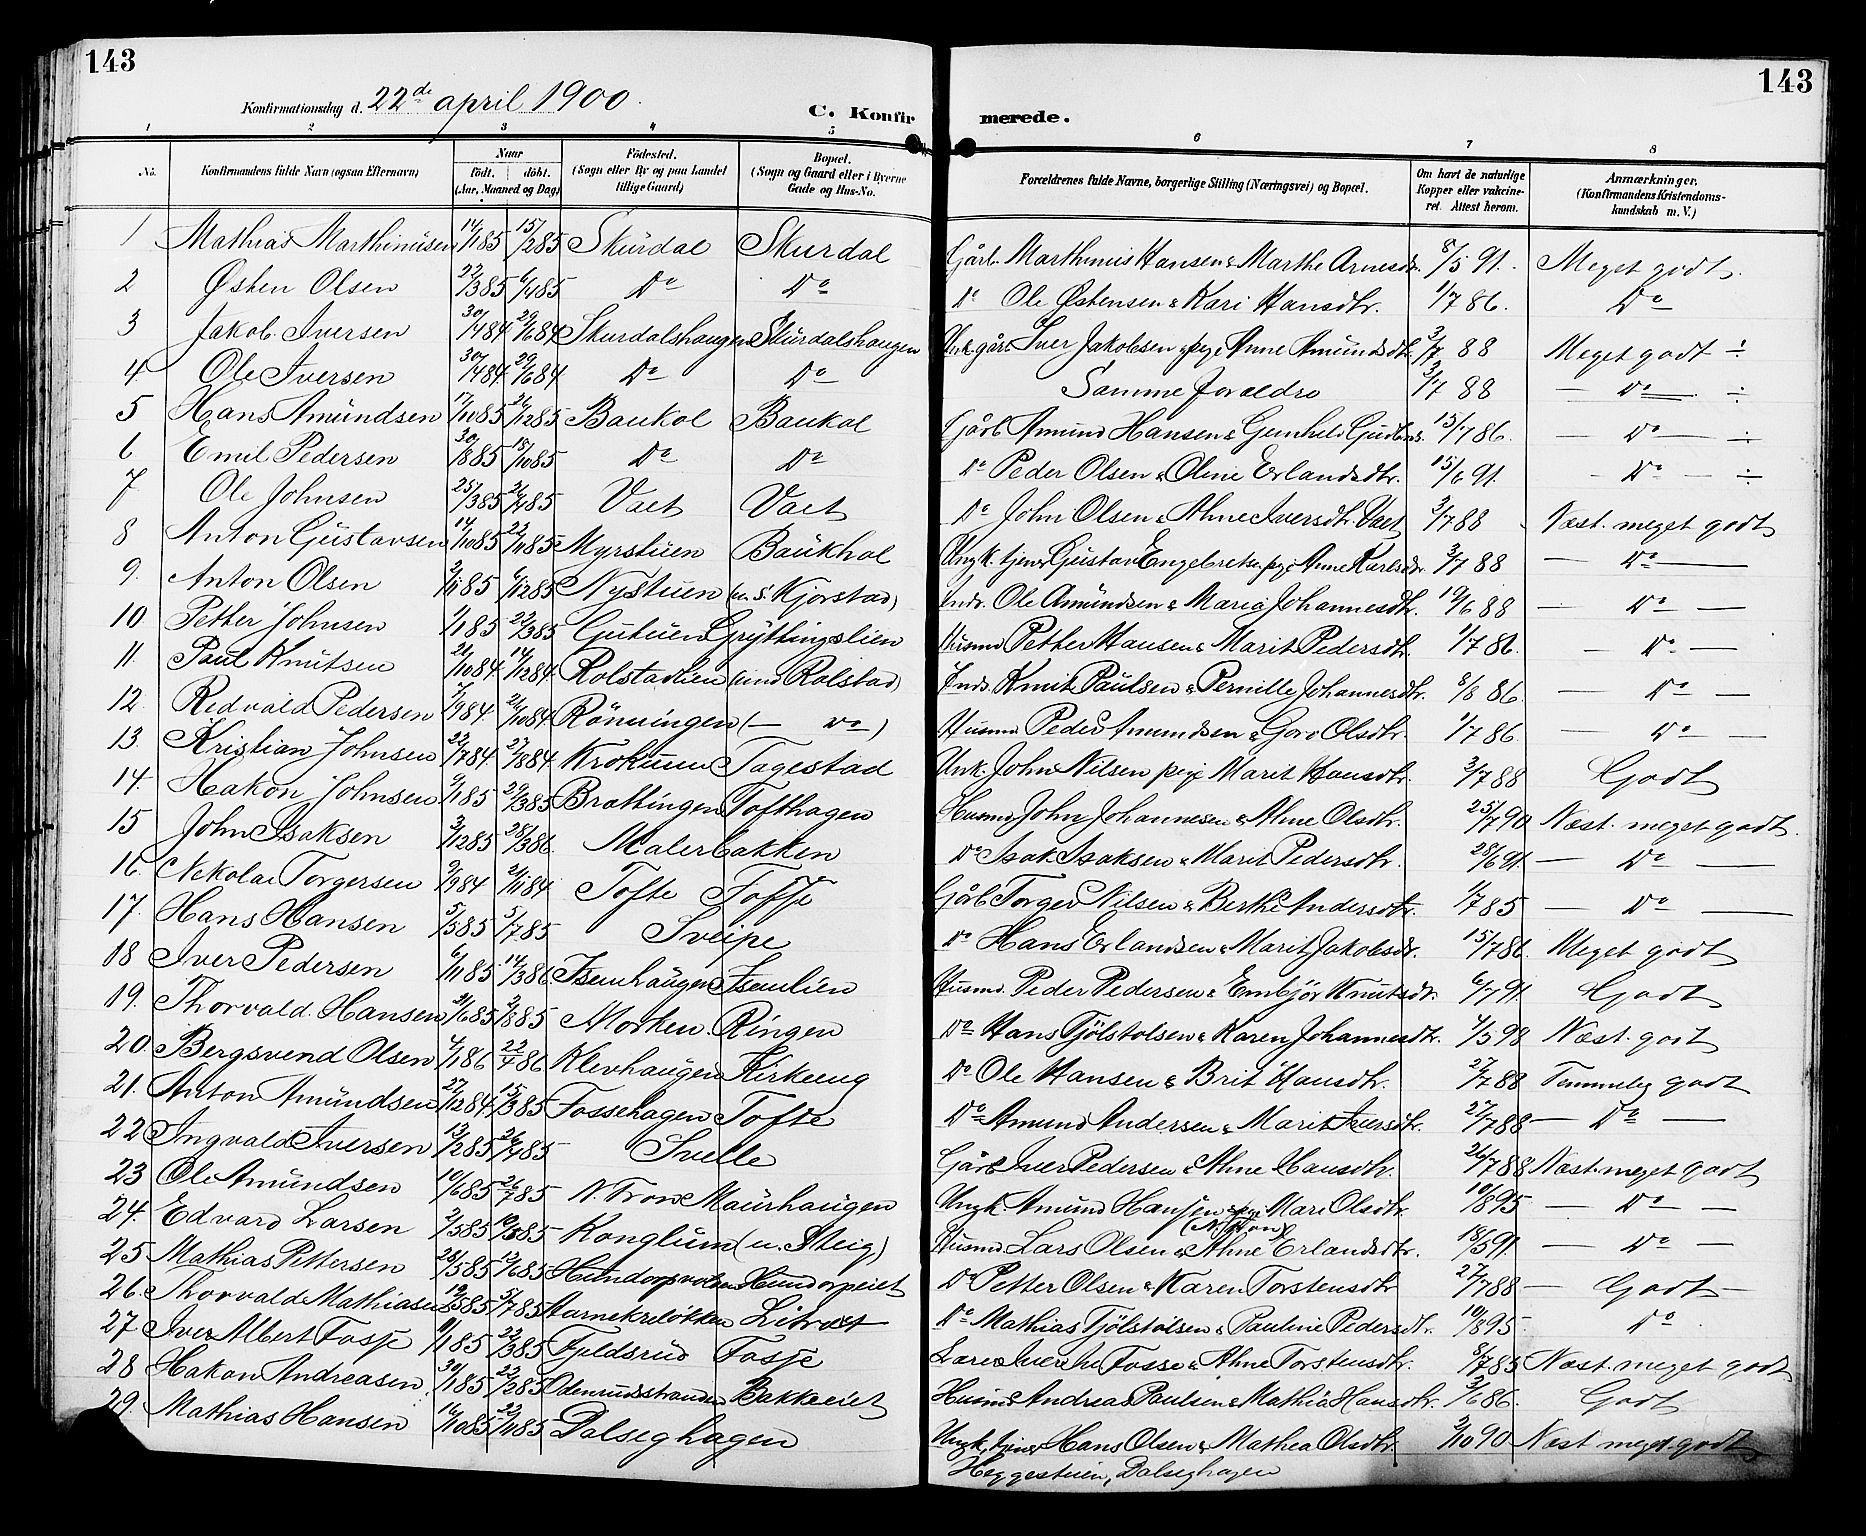 143
143
Konfirmationsdag d. 22de april 1900.
C. Konfirmerede.
1 2 3 4 5 6 7 8
No. Konfirmandens fulde Navn (ogsaa Efternavn) Naar født. døbt. (Aar, Maaned og Dag) Fødested. (Sogn eller By og paa Landet tillige Gaard) Bopæl. (Sogn og Gaard eller i Byerne Gade og Hus-No. Forældrenes fulde Navne, borgerlige Stilling (Næringsvei) og Bopæl. Om havt de naturlige Kopper eller vakcineret. Attest herom. Anmærkninger. (Konfirmandens Kristendomskundskab m. V.)
1 Mathias Marthinusen 14/1 85 15/2 85 Skurdal Skurdal Gårb. Marthinus Hansen & Marthe Arnesdr. 8/5 91. Meget godt.
2 Østen Olsen 22/3 85 6/4 85 Do Do Do Ole Østensen & Kari Hansdtr. 1/7 86. Do
3 Jakob Iversen 30/4 84 29/6 84 Skurdalshaugen Skurdalshaugen Iver Jakobsen & pige Anne Amundsdtr. 2/7 88 Meget godt ÷
4. Ole Iversen 30/4 84 29/6 84 Do Do Samme foreldre 2/7 88 — Do — ÷
5 Hans Amundsen 17/10 85 26/12 85 Baukol Baukol Gårb. Amund Hansen & Gunhild 15/7 86. — Do — ÷
6 Emil Pedersen 30/8 85 18/10 85 Do Do Do Peder Olsen & Oline Erlandsdtr. 15/6 91. — Do — ÷
7 Ole Johnsen 25/3 85 26/4 85 Vaet Vaet Do John Olsen & Ahne Iversdtr. Vaet 2/7 88 Næst. meget godt
8 Anton Gustavsen 14/10 85 22/11 85 Myrstuen Baukhol Ungk. tjener Gustav Engebretsen pige Anne Karlsdtr. 3/7 88 — Do —
9. Anton Olsen 6/12 85 Nystuen (u. s. Kjorstad) Inds. Ole Amundsen & Maria Johannesdtr. 19/6 88 — Do —
10. Petter Johnsen 1/1 85 22/3 85 Gutuen Gryttingslien Husmd Petter Hansen & Marit Pedersdtr. 1/7 86. — Do —
11. Paul Knutsen 14/12 84 Rolstadlien (und Rolstad) Inds. Knut Paulsen & Pernille Johannesdtr. 8/8 86. — Do —
12. Redvald Pedersen 26/10 84 Rönningen (— Do) Husmd Peder Amundsen & Goro Olsdtr. 1/7 86. — Do —
13. Kristian Johnsen 22/7 84 27/8 84 Tagestad Unk. John Nilsen pige Marit Hansdtr. 3/7 88 Godt
14. Hakon Johnsen 9/1 85 29/3 85 Brattingen Tofthagen Husmd John Johannesen & Ahne Olsdtr. 25/7 90 Næst. meget godt.
15 John Isaksen 3/12 85 28/3 86. Malerbakken Do Isak Isaksen & Marit Pedersdtr. 28/6 91. — Do —
16. Nekolai Torgersen 2/9 84 2/11 84 Tofte Tofte Gårb Torger Nilsen & Berthe Andersdtr. 1/7 85 — Do —
17. Hans Hansen 5/5 85 5/7 85 Sveipe Do Hans Erlandsen & Marit Jakobsdr. 15/7 86. Meget godt
18 Iver Pedersen 6/11 85 14/3 86 Isumhaugen Isumlien Husmd. Peder Pedersen & Embjör Knutsdr. 6/7 91. Godt
19. Thorvald Hansen 21/6 85 2/8 85 Morken Ringen Do Hans Tjölstolsen & Karen Johannesdtr. 4/5 98 Næst. godt
20. Bergsvend Olsen 4/1 86 22/4 86 Klevhaugen Kirkeeng Do Ole Hansen & Brit Hansdtr. 27/7 88 Temmelig godt
21. Anton Amundsen 27/12 84 15/3 85 Fossehagen Tofte Do Amund Andersen & Marit Iversdtr. 27/7 88 — Do —
22. Ingvald Iversen 13/2 85 26/4 85 Svelle Gårb Iver Pedersen & Ahne Hansdtr. 26/7 88 Næst. meget godt
23 Ole Amundsen 19/6 85 26/7 85 N. Trone Maurhaugen Ungk. Amund Hansen (N. Trone) & pige Mari Olsdtr. 10/8 95 — Do —
24. Edvard Larsen 2/5 85 Konglum (u. Steig) Husmd. Lars Olsen & Ahne Erlandsdtr. 18/5 91. — Do —
25 Mathias Pettersen 28/5 85 Hundorpeiet Do Petter Olsen & Karen Torstensdtr 27/7 88 — Godt —
26. Thorvald Mathiasen 5/7 85 Do Mathias Tjölstolsen & Pauline Pedersdtr. 10/8 95 Do
27 Iver Albert Fosse 11/1 85 22/3 85 Fjeldsrud Fosse Fosse & Ahne Torstensdtr. 8/7 85 Næst. meget godt.
28 Hakon Andreasen 22/2 85 Odenrudstranden Bakkeeiet Husmd Andreas Paulsen & Mathia Hansdtr. 3/6 86. Godt
29. Mathias Hansen 16/10 85 22/11 85 Dalseghagen Ungk. tjener Hans Olsen & Mathea Olsdtr. 2/10 90 Næst meget godt
Heggestuen, Dalseghagen